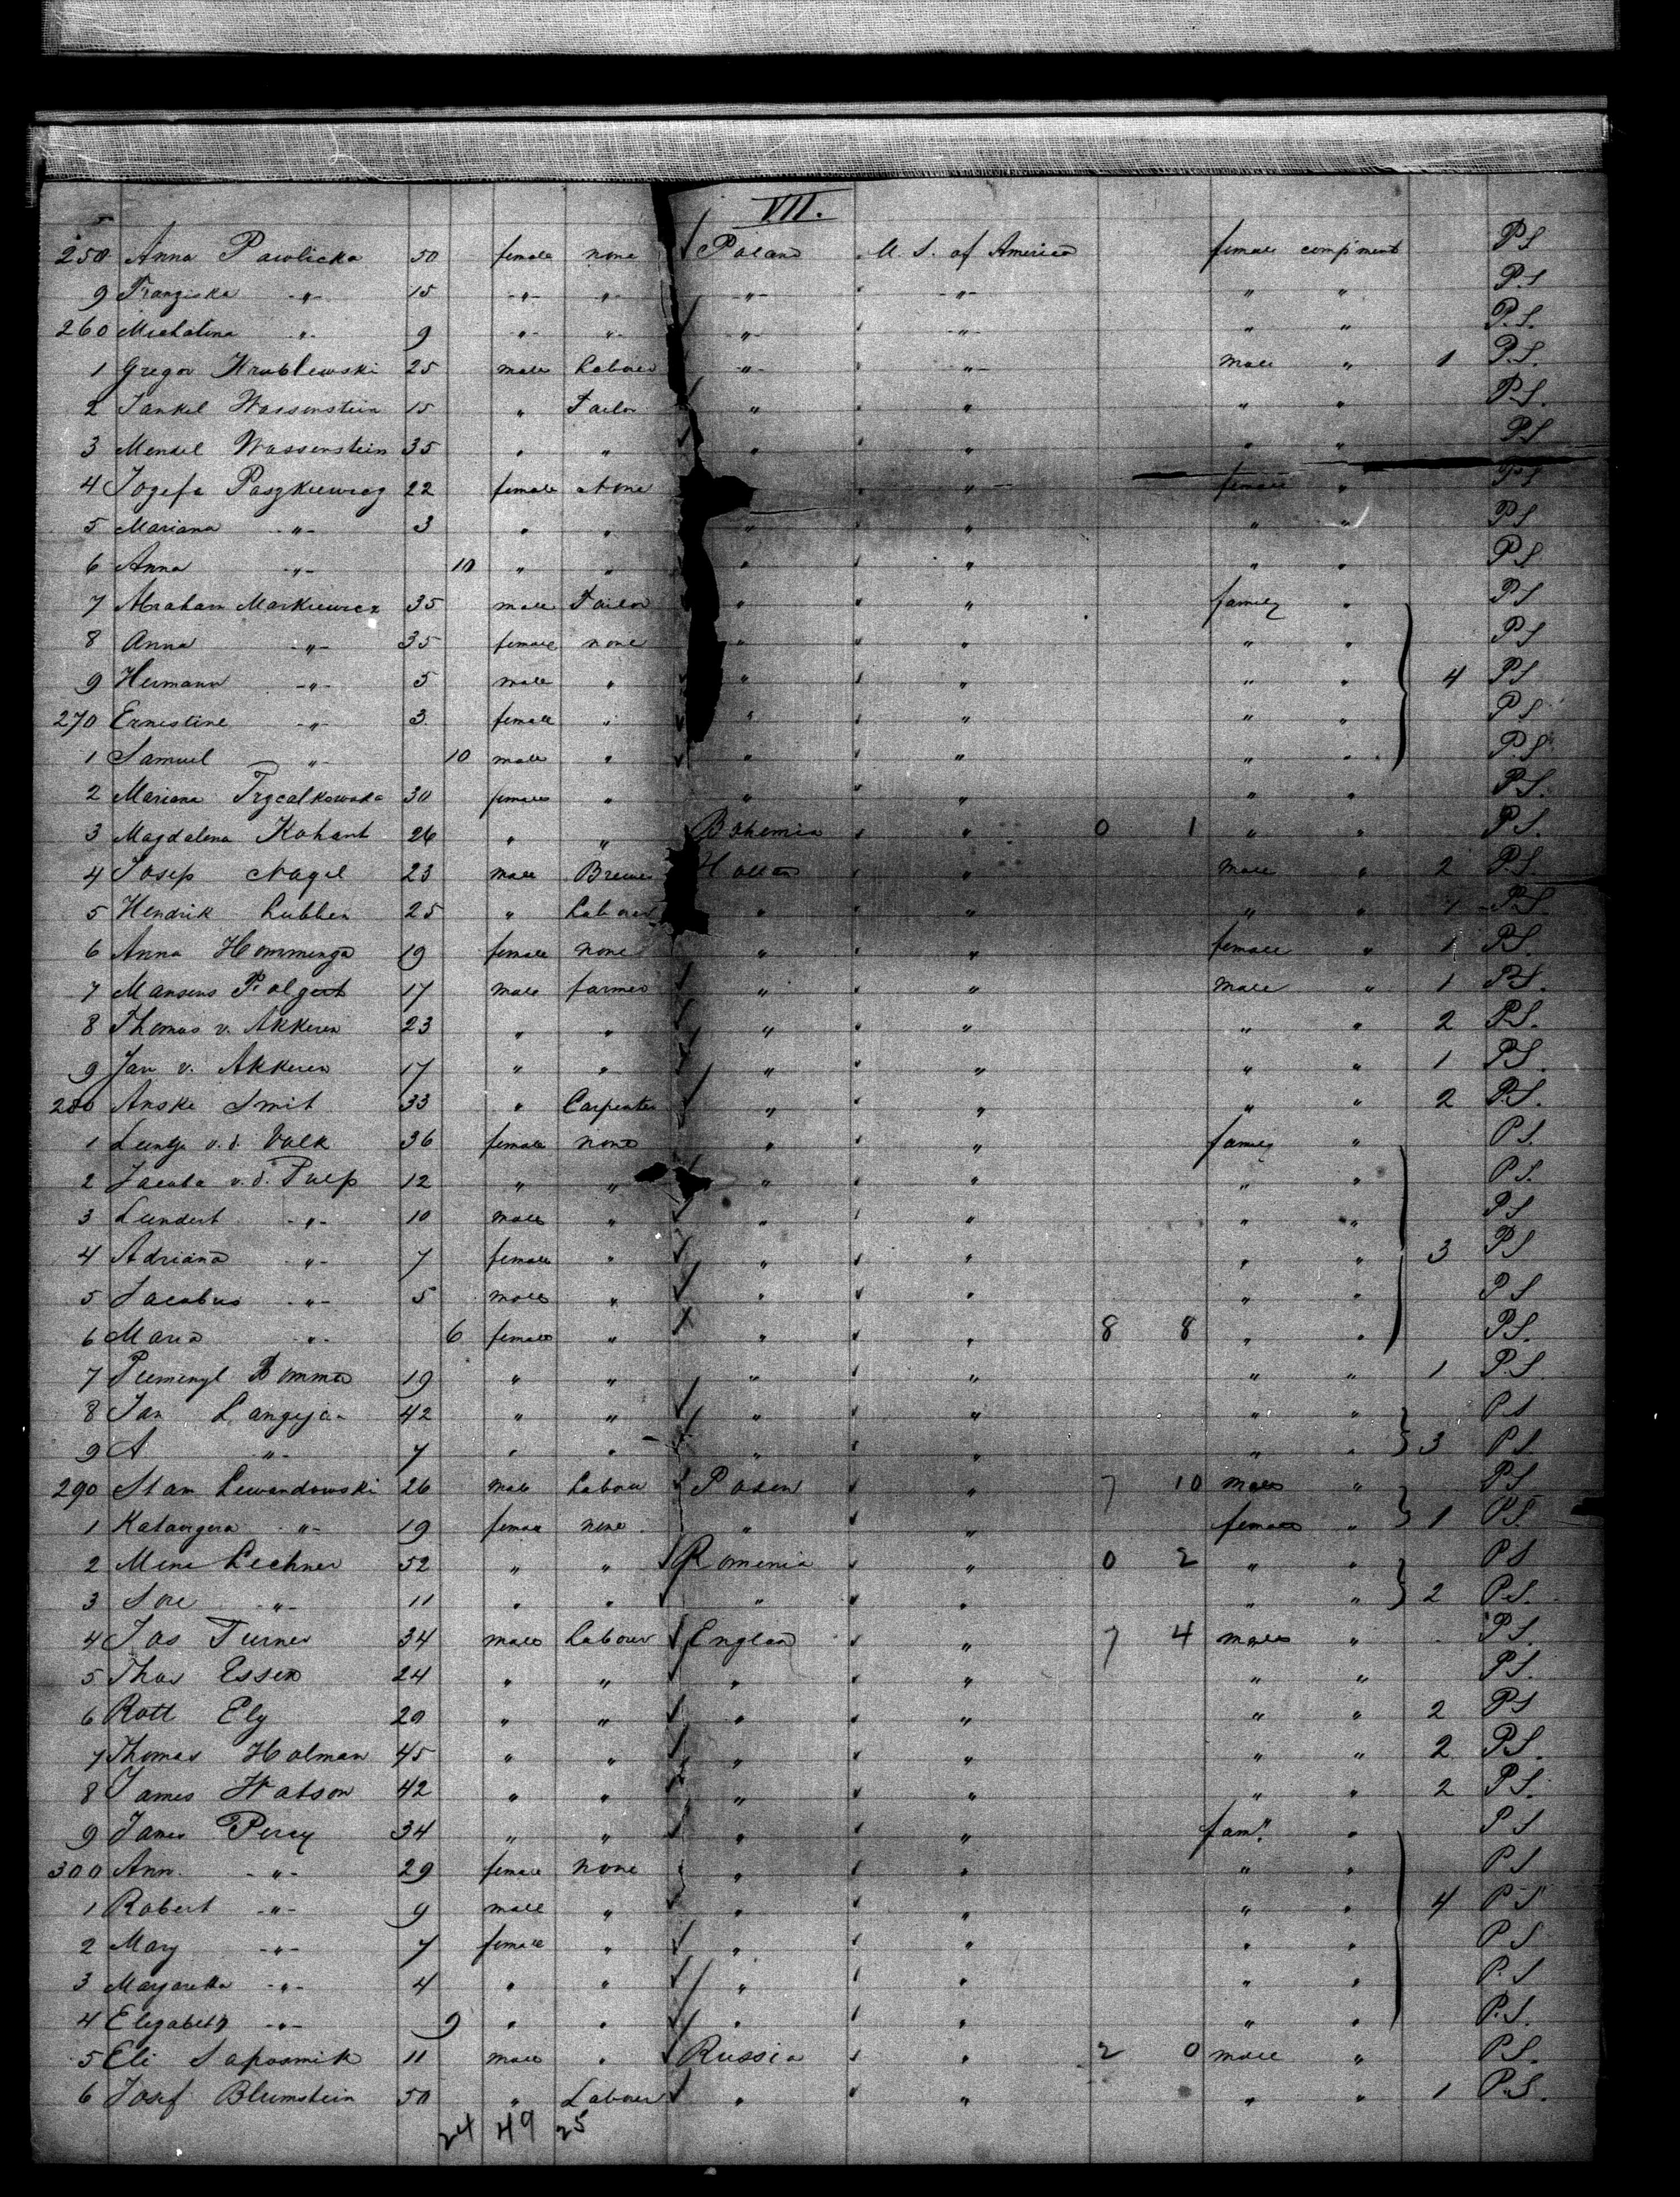 VII.
250 Anna Pawlicka 50 female none Poland U. S. of America female comp'ment P.S
9 Franziska -"- 15 -"- -"- -"- -"- " " P.S
260 Michalina " 9 -"- " -"- -"- " " P.S.
1 Gregor Wrublewski 25 male Labour -"- -"- male " 1 P.S.
2 Jankel Wassenstein 15 " Tailor " " " " P.S.
3 Mendel Wassenstein 35 " " " " " " P.S
4 Jozefa Paszkiewicz 22 female None " female " P.S
5 Mariana -"- 3 " " " " " " P.S
6 Anna -"- 10 " " " " " " P.S
7 Abraham Markiewicz 35 male Tailor " " family " P.S
8 Anna -"- 35 female none " " " " P.S
9 Hermann -"- 5 male " " " " " 4 P.S
270 Ernestine -"- 3 female " " " " " P.S
1 Samuel -"- 10 male " " " " " P.S.
2 Mariana 30 female " " " " " P.S.
3 Magdalena Kohant 26 " " Bohemia " 0 1 " " P.S.
4 Josep Nagel 23 male Brewer " male " 2 P.S.
5 Hendrik Lubben 25 " Labourer " " " " 1 P.S.
6 Anna Hommenga 19 female none " " female " 1 P.S.
7 17 male farmer " " male " 1 P.S.
8 Thomas v. Akkeren 23 " " " " " " 2 P.S.
9 Jan v. Akkeren 17 " " " " " " 1 P.S.
280 Anske Smit 33 " Carpenter " " " " 2 P.S.
1 v. d. Valk 36 female none " " family " P.S.
2 Jacoba v. d. Pulp 12 " " " " " " P.S.
3 Lendert -"- 10 male " " " " " P.S
4 Adriana -"- 7 female " " " " " 3 P.S
5 Jacobus -"- 5 male " " " " " P.S
6 Maria -"- 6 female " " " 8 8 " " P.S.
7 19 " " " " " " 1 P.S.
8 Jan 42 " " " " " " P.S
9 A " 7 " " " " " " 3 P.S.
290 Stan Lewandowski 26 male Labour Posen " 7 10 male " P.S
1 -"- 19 female none " " female " 1 P.S.
2 Mene Lechner 52 " " Romenia " 0 2 " " P.S
3 Sore -"- 11 " " " " " " 2 P.S.
4 Jas Turner 34 male Labour England " 7 4 male " P.S.
5 Thos Essex 24 " " " " " " P.S.
6 Rott Ely 20 " " " " " " 2 P.S
7 Thomas Holman 45 " " " " " " 2 P.S.
8 James Watson 42 " " " " " " 2 P.S.
9 James Percy 34 " " " " fam" " P.S
300 Ann -"- 29 female none " " " " P.S
1 Robert -"- 9 male " " " " " 4 P.S
2 Mary -"- 7 female " " " " " P.S
3 Margaretha -"- 4 " " " " " " P.S
4 Elizabeth -"- 9 " " " " " " P.S.
5 Eli Saposnik 11 male " Russia " 2 0 male " P.S.
6 Josef Blumstein 50 " Labour " " " " 1 P.S.
24 49 25